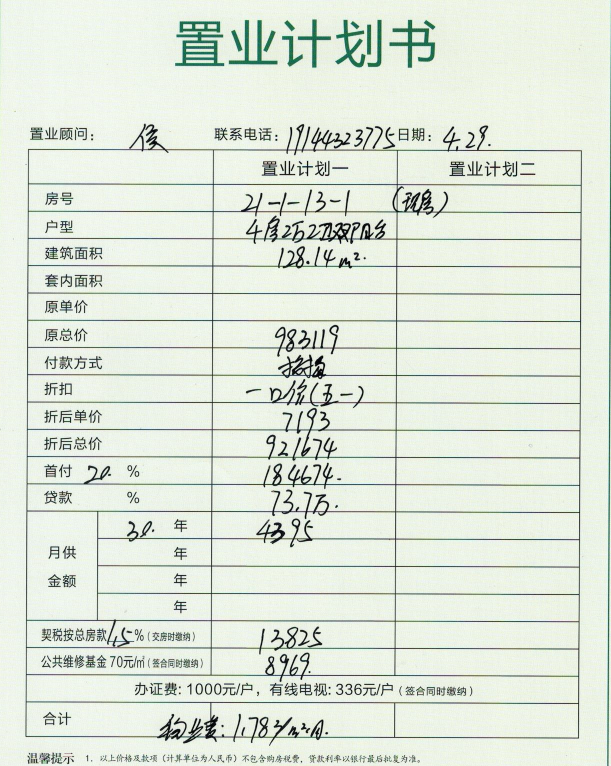 置业计划书
置业顾问： 侯 联系电话：19144323775 日期：4.29.
置业计划一 置业计划二
房号 21-1-13-1 (现房)
户型 4房2厅2卫双阳台
建筑面积 128.14m².
套内面积
原单价
原总价 983119
付款方式 按揭
折扣 一口价(五一)
折后单价 7193
折后总价 921674
首付 20. % 184674.
贷款 % 73.7万.
月供金额 30. 年 4395
年
年
年
契税按总房款1.5%(交房时缴纳) 13825
公共维修基金 70元/㎡(签合同时缴纳) 8969.
办证费: 1000元/户，有线电视: 336元/户(签合同时缴纳)
合计 物业费: 1.78元/m²·月.
温馨提示 1、以上价格及款项（计算单位为人民币）不包含购房税费，贷款利率以银行最后批复为准。